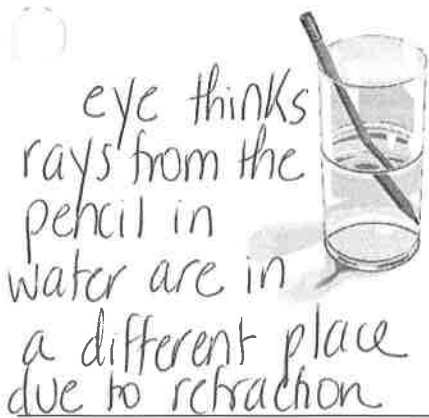 eye thinks
rays from the
pencil in
water are in
a different place
due to refraction